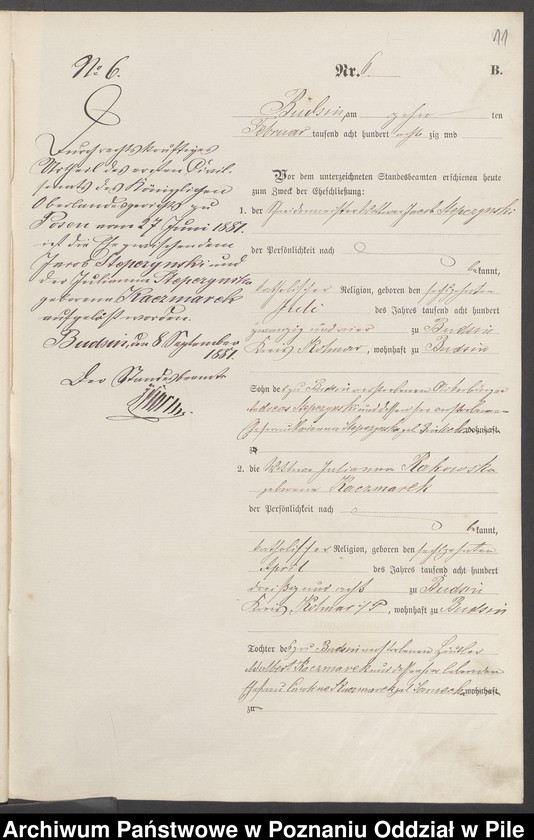 11
Nr. 6
B.
Budsin, am zehn ten
Februar tausend acht hundert acht zig und
Vor dem unterzeichneten Standesbeamten erschienen heute
zum Zweck der Eheschließung:
1. der Schneidermeister Wittwer Jacob Stepczynski
der Persönlichkeit nach
bekannt,
katholischer Religion, geboren den sechszehnten
Juli des Jahres tausend acht hundert
zwanzig und vier zu Budsin
Kreis Kolmar, wohnhaft zu Budsin
Sohn des zu Budsin verstorbenen Ackerbürger
Andreas Stepczynski und dessen verstorbenen
Ehefrau Stepczynska geb. wohnhaft
zu
2. die Wittwe Julianna Rakowska
geborene Kaczmarek
der Persönlichkeit nach
bekannt,
katholischer Religion, geboren den sechszehnten
April des Jahres tausend acht hundert
dreißig und acht zu Budsin
Kreis Kolmar i/P, wohnhaft zu Budsin
Tochter des zu Budsin verstorbenen Häusler
Adalbert Kaczmarek und dessen lebenden
Ehefrau Kaczmarek geb. wohnhaft
zu
No 6.
Durch rechtskräftiges
Urtheil des ersten Civil-
senats des Königlichen
Oberlandesgerichts zu
Posen vom 27 Juni 1881.
ist die Ehe zwischen dem
Jacob Stepczynski und
der Julianna Stepczynska
geborene Kaczmarek
aufgelöst worden.
Budsin, den 8 September
1881.
Der Standesbeamte
Archiwum Państwowe w Poznaniu Oddział w Pile